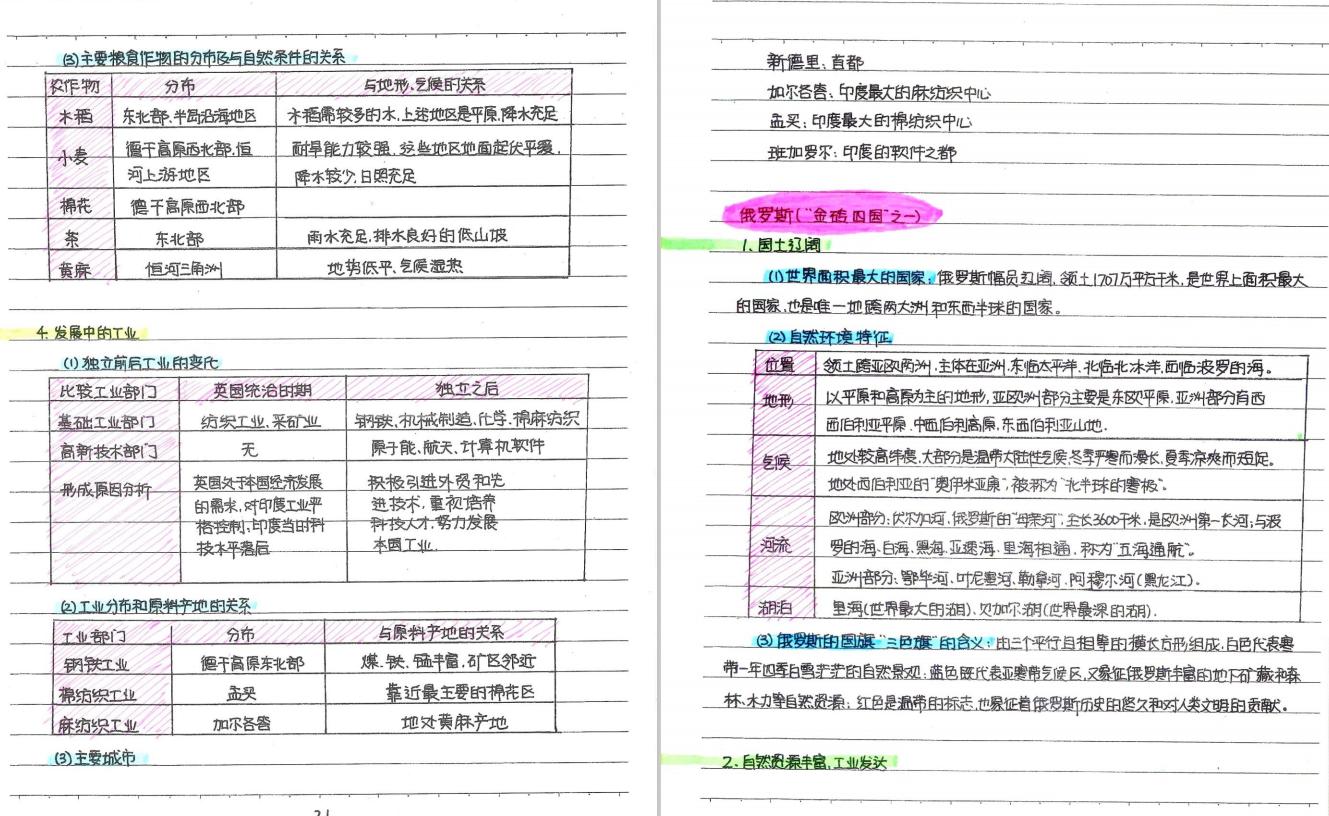 (3)主要粮食作物的分布及与自然条件的关系
农作物 分布 与地形、气候的关系
水稻 东北部、半岛沿海地区 水稻需较多的水,上述地区是平原,降水充足
小麦 德干高原西北部、恒 耐旱能力较强、这些地区地面起伏平缓,
河上游地区 降水较少,日照充足
棉花 德干高原西北部
茶 东北部 雨水充足,排水良好的低山坡
黄麻 恒河三角洲 地势低平、气候湿热
4. 发展中的工业
(1)独立前后工业的变化
比较工业部门 英国统治时期 独立之后
基础工业部门 纺织工业、采矿业 钢铁、机械制造、化学、棉麻纺织
高新技术部门 无 原子能、航天、计算机软件
形成原因分析 英国处于本国经济发展 积极引进外资和先
的需求,对印度工业严 进技术,重视培养
格控制;印度当时科 科技人才,努力发展
技水平落后 本国工业.
(2)工业分布和原料产地的关系
工业部门 分布 与原料产地的关系
钢铁工业 德干高原东北部 煤、铁、锰丰富,矿区邻近
棉纺织工业 孟买 靠近最主要的棉花区
麻纺织工业 加尔各答 地处黄麻产地
(3)主要城市
21
新德里:首都
加尔各答:印度最大的麻纺织中心
孟买:印度最大的棉纺织中心
班加罗尔:印度的软件之都
俄罗斯("金砖四国"之一)
1、国土辽阔
(1)世界面积最大的国家:俄罗斯幅员辽阔、领土1707万平方千米,是世界上面积最大
的国家,也是唯一地跨两大洲和东西半球的国家。
(2)自然环境特征
位置 领土跨亚欧两洲,主体在亚洲、东临太平洋、北临北冰洋,西临波罗的海。
地形 以平原和高原为主的地形,亚欧洲部分主要是东欧平原,亚洲部分自西
西伯利亚平原、中西伯利高原,东西伯利亚山地.
气候 地处较高纬度,大部分是温带大陆性气候,冬季严寒而漫长,夏季凉爽而短促。
地处西伯利亚的"奥伊米亚康",被称为"北半球的寒极"。
欧洲部分:伏尔加河,俄罗斯的"母亲河",全长3600千米,是欧洲第一长河;与波
河流 罗的海、白海、黑海、亚速海、里海相通,称为"五海通航"。
亚洲部分:鄂毕河、叶尼塞河、勒拿河、阿穆尔河(黑龙江).
湖泊 里海(世界最大的湖)、贝加尔湖(世界最深的湖).
(3)俄罗斯的国旗"三色旗"的含义:由三个平行且相等的横长方形组成,白色代表寒
带一年四季白雪茫茫的自然景观;蓝色既代表亚寒带气候区,又象征俄罗斯丰富的地下矿藏和森
林、水力等自然资源;红色是温带的标志,也象征着俄罗斯历史的悠久和对人类文明的贡献。
2.自然资源丰富,工业发达